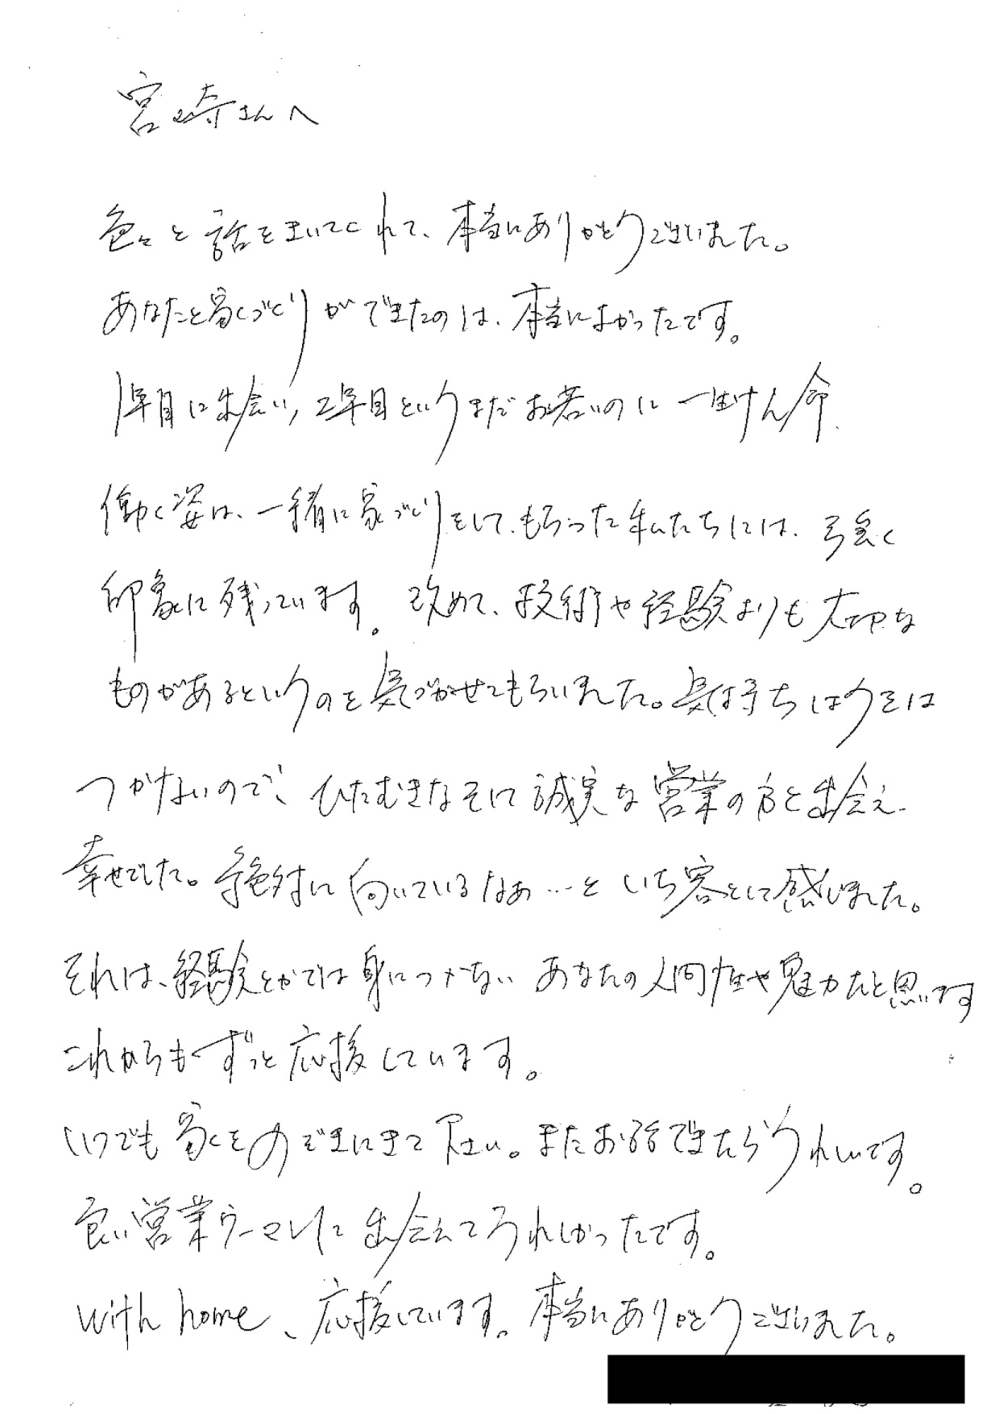 宮崎さんへ
色々と話をきいてくれて、本当にありがとうございました。
あなたと家づくりができたのは、本当によかったです。
1年目に出会い、2年目というまだお若いのに一生けん命
働く姿は、一緒に家づくりをして、もらった私たちには、強く
印象に残っています。改めて、技術や経験よりも大切な
ものがあるというのを気づかせてもらいました。気持ちはウソは
つかないので、ひたむきなそして誠実な営業の方と出会え
幸せでした。絶対に向いているなぁ…といち客として感じました。
それは、経験とかでは身につかないあなたの人間性や魅力だと思います
これからもずっと応援しています。
いつでも家をのぞきにきて下さい。またお話できたらうれしいです。
良い営業ウーマンに出会えてうれしかったです。
with home、応援しています。本当にありがとうございました。